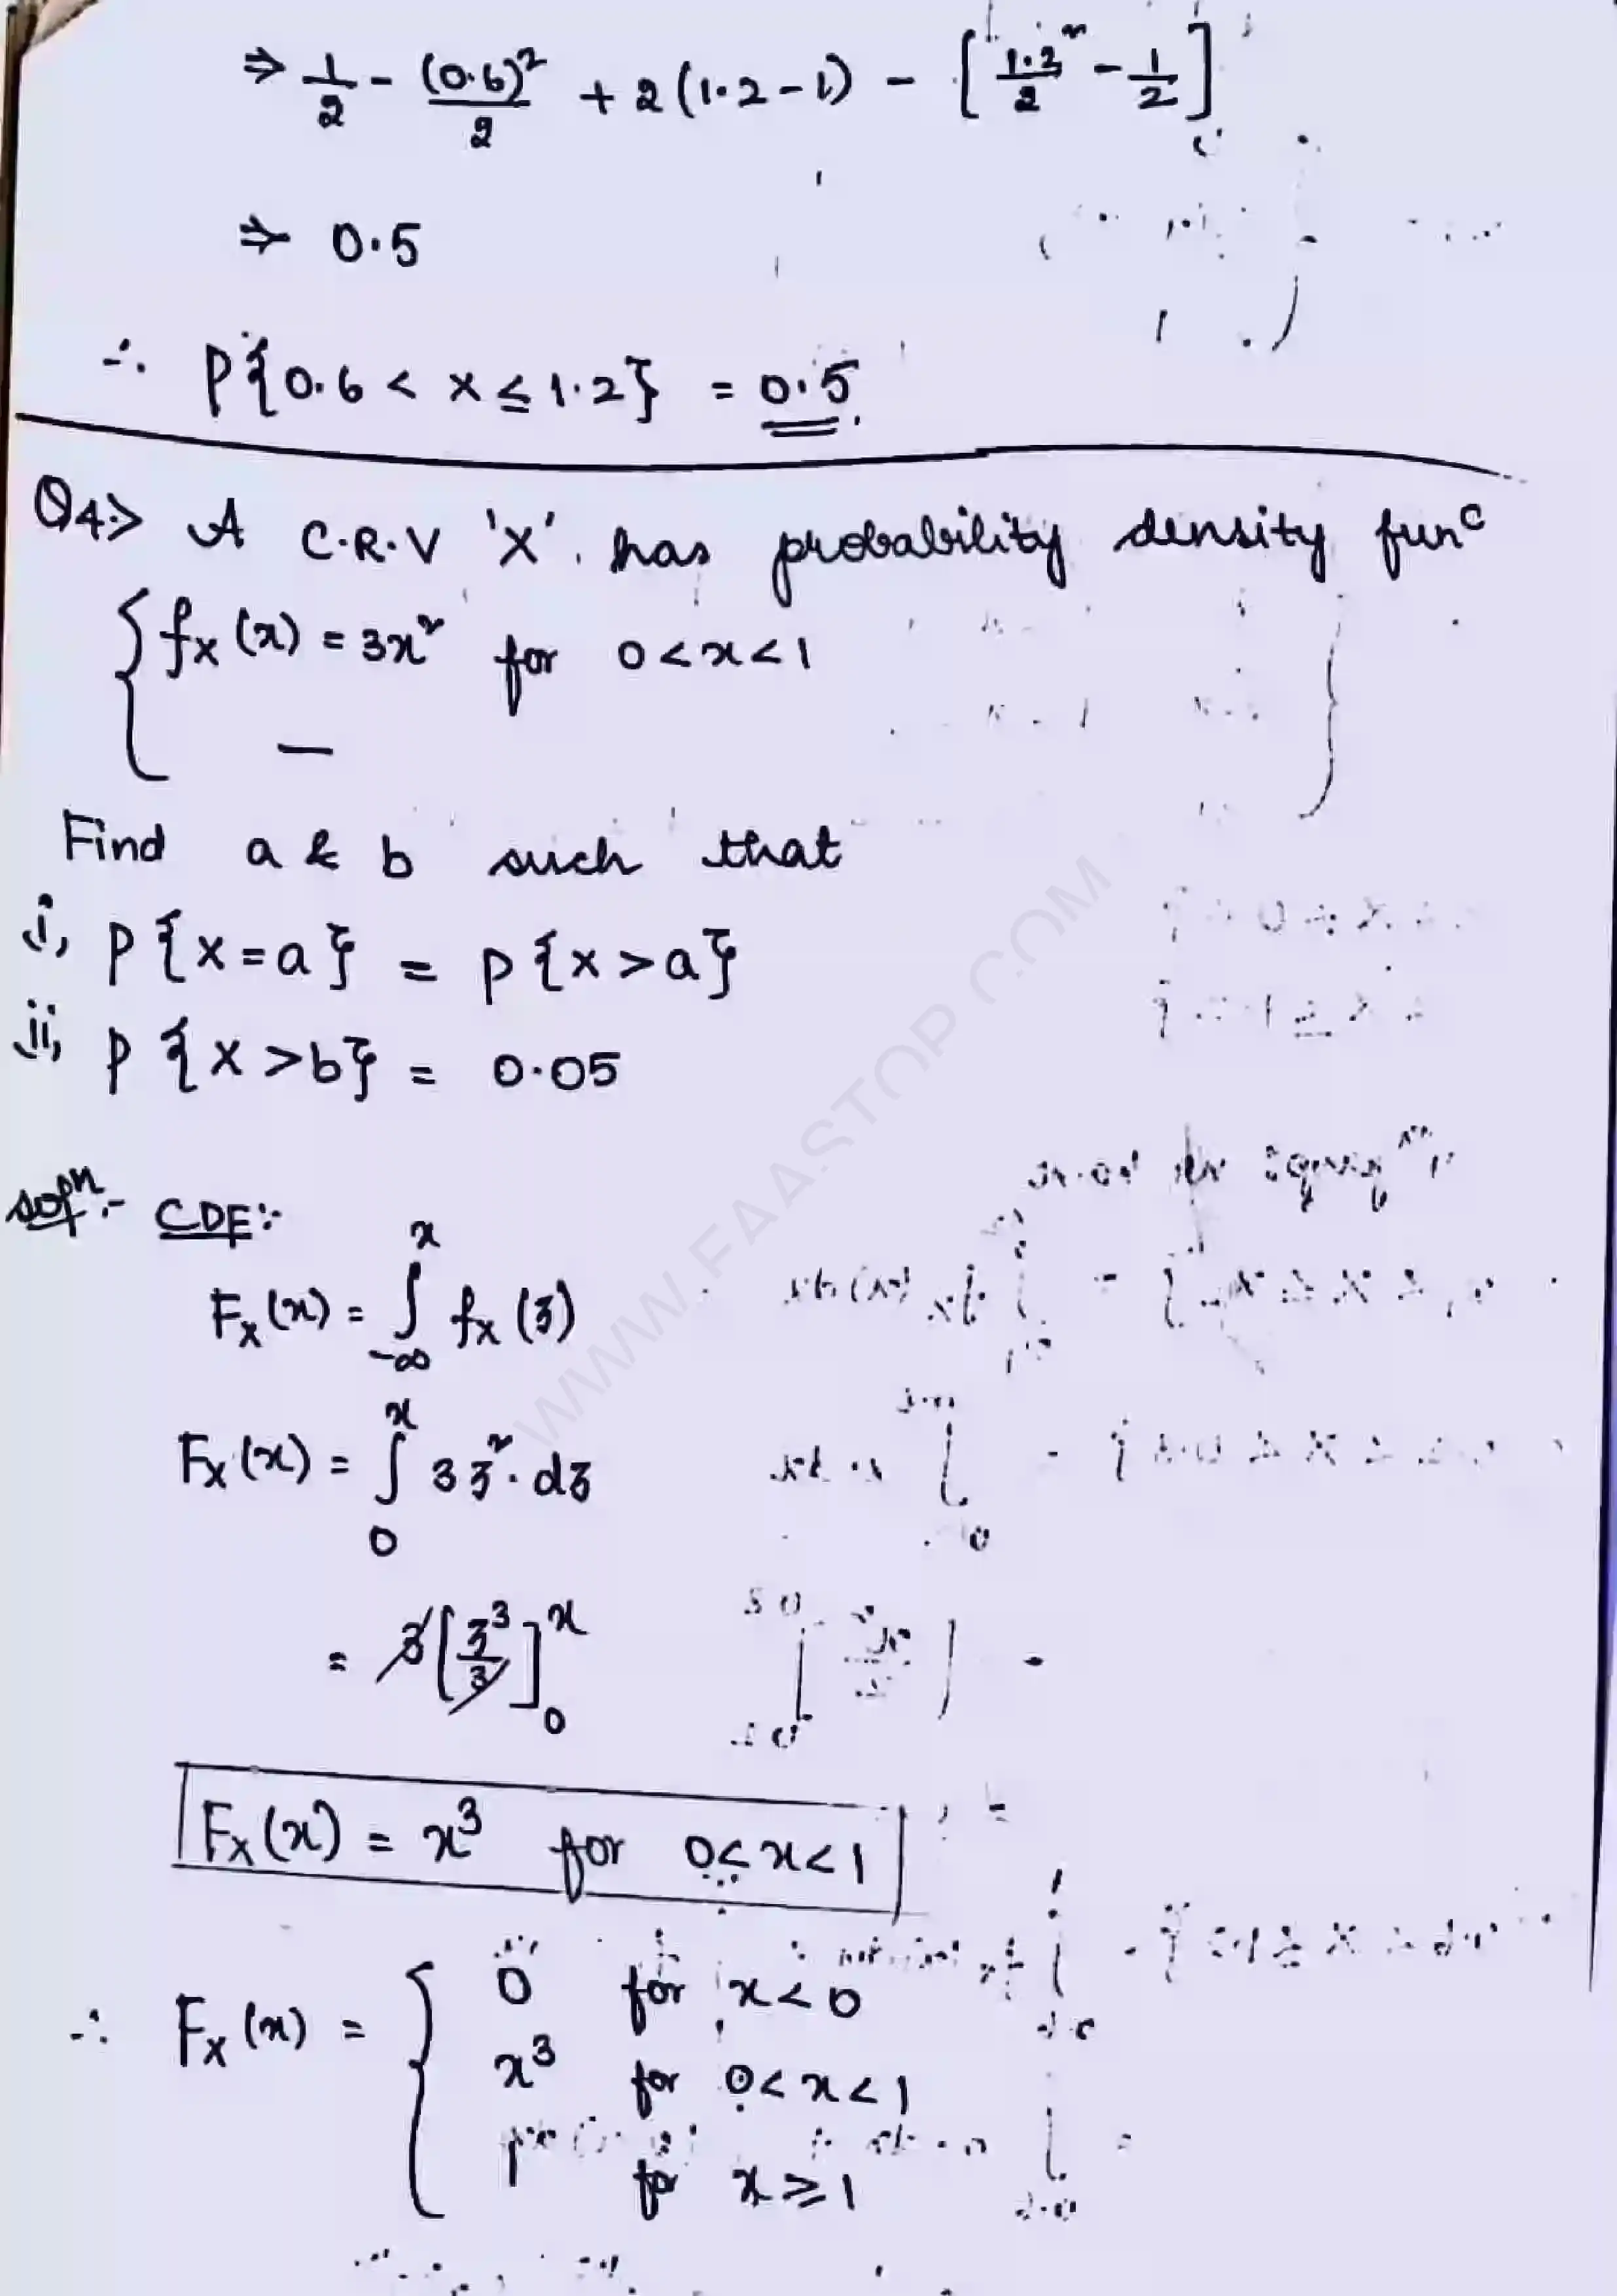 ⇒ 1/2 - (0.6)²/2 + 2(1.2-1) - [1.2²/2 - 1/2]
⇒ 0.5
∴ P{0.6 < x ≤ 1.2} = 0.5.
Q4:> A C.R.V 'X' has probability density funᶜ
{ fx(x) = 3x² for 0<x<1
—
Find a & b such that
i, P{x=a} = P{x>a}
ii, P{x>b} = 0.05
Solⁿ:- CDF:-
Fx(x) = ∫_{-∞}^{x} fx(z)
Fx(x) = ∫_{0}^{x} 3z².dz
= 3[z³/3]_{0}^{x}
Fx(x) = x³ for 0≤x<1
∴ Fx(x) = { 0 for x<0
x³ for 0<x<1
for x≥1
WWW.FAASTOP.COM